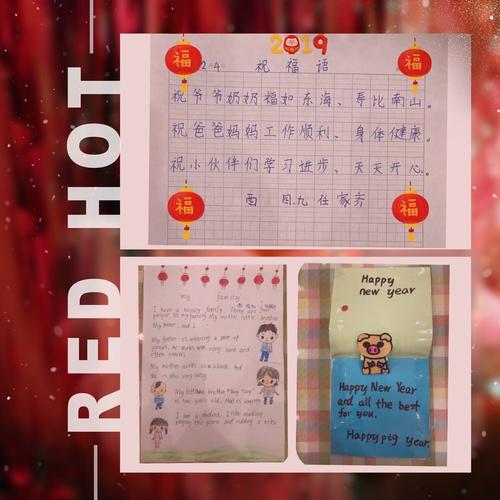 RED HOT
2019
福
福
2 4 祝福语
祝爷爷奶奶福如东海、寿比南山。
祝爸爸妈妈工作顺利、身体健康。
祝小伙伴们学习进步、天天开心。
福
福
my family
I have a happy family. There are
people in my family. My mother, little brother
My father, and I.
My father is wearing a pair of
glasses. He works very hard and
often
My mother works in a bank. And
she is also very busy.
My little brother
is two years old.
I am a student. I like
playing the and riding a bike
Happy
new year
Happy New Year
and all the best
for you.
Happy pig year.